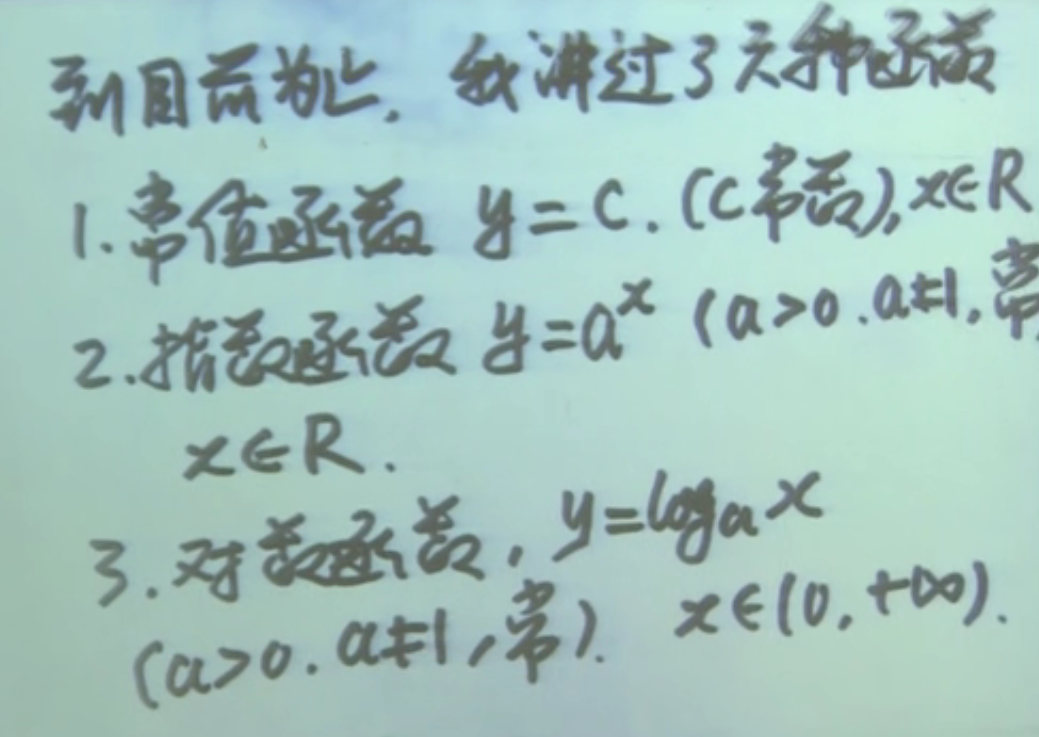 到目前为止,我讲过了六种函数
1.常值函数 y=C.(C常数),x∈R
2.指数函数 y=a^x (a>0.a≠1,常
x∈R.
3.对数函数,y=log_a x
(a>0.a≠1,常). x∈(0,+∞).